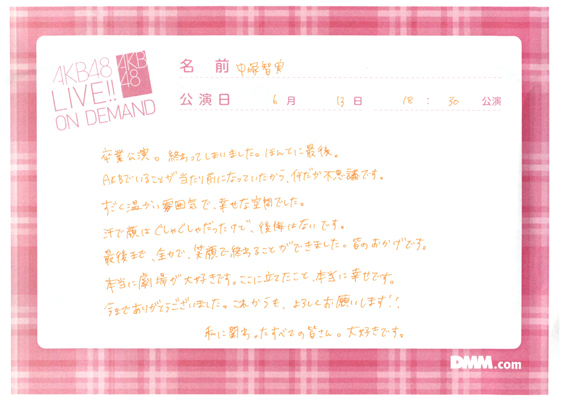 AKB48
LIVE!!
ON DEMAND
AKB
48
名 前 中塚智実
公演日 6月 13日 18:30 公演
卒業公演。終わってしまいました。ほんとに最後。
AKBでいることが当たり前になっていたから、何だか不思議です。
すごく温かい雰囲気で、幸せな空間でした。
汗で顔はぐしゃぐしゃだったけど、後悔はないです。
最後まで、全力で、笑顔で終わることができました。皆のおかげです。
本当に劇場が大好きです。ここに立てたこと、本当に幸せです。
今までありがとうございました。これからも、よろしくお願いします!!
私に関わったすべての皆さん。大好きです。
DMM.com